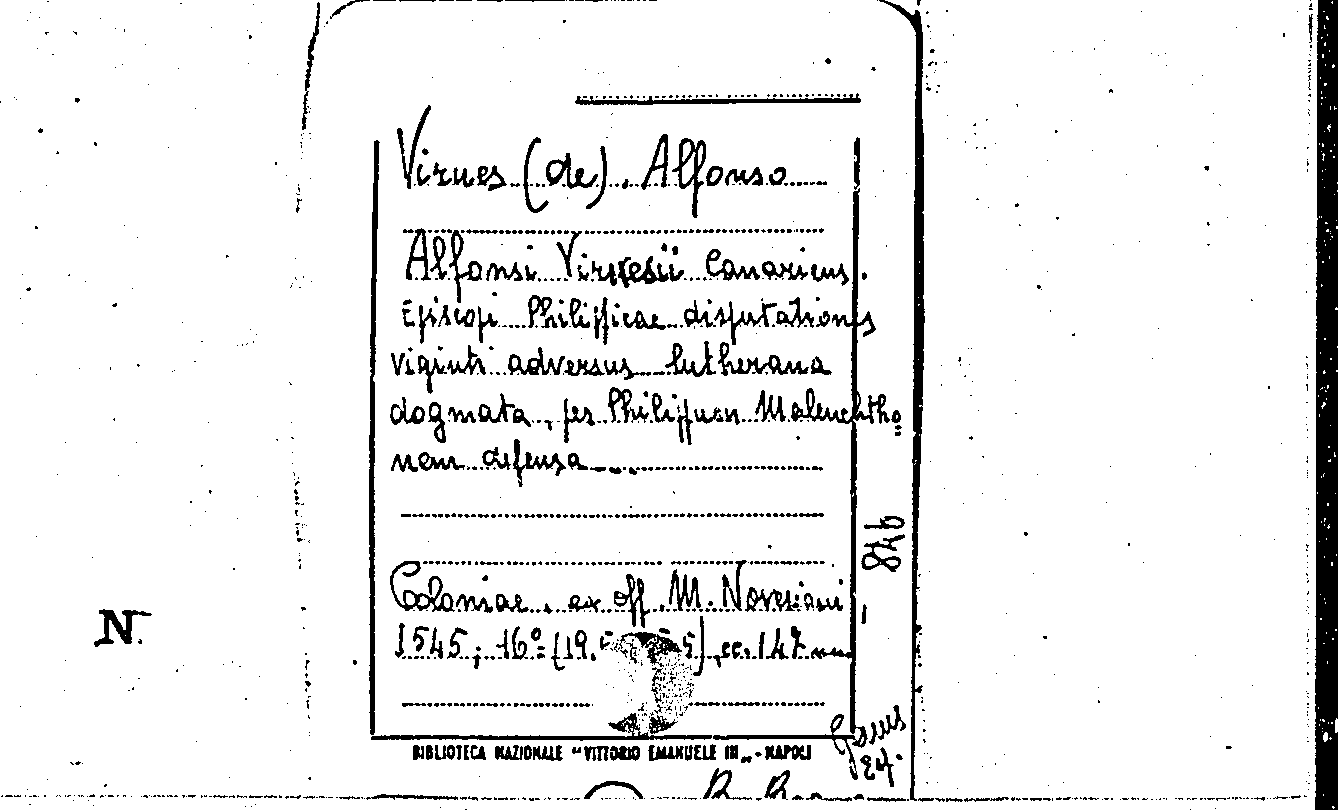 Virues (de). Alfonso
Alfonsi Virvesii Canarieus.
Episcopi Philippicae disputationes
viginti adversus lutherana
dogmata, per Philippum Malenchtho„
nem defensa....
948
Coloniae, ex off. M. Novesiani,
1545; 16° (19.5 5) cc. 147 nn.
N.
BIBLIOTECA NAZIONALE "VITTORIO EMANUELE III„ - NAPOLI